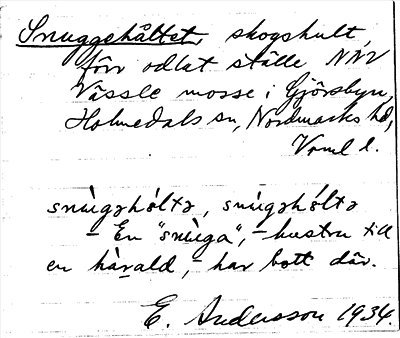 Snuggehåltet, skogshult,
förr odlat ställe NNV
Vässle mosse i Gjörsbyn,
Holmedals sn, Nordmarks hd,
Vrml l.
snùgəhòltə, snùgəhóltə
– En "snùga", – hustru till
en hàrald, – har bott där.
E. Andersson 1934.